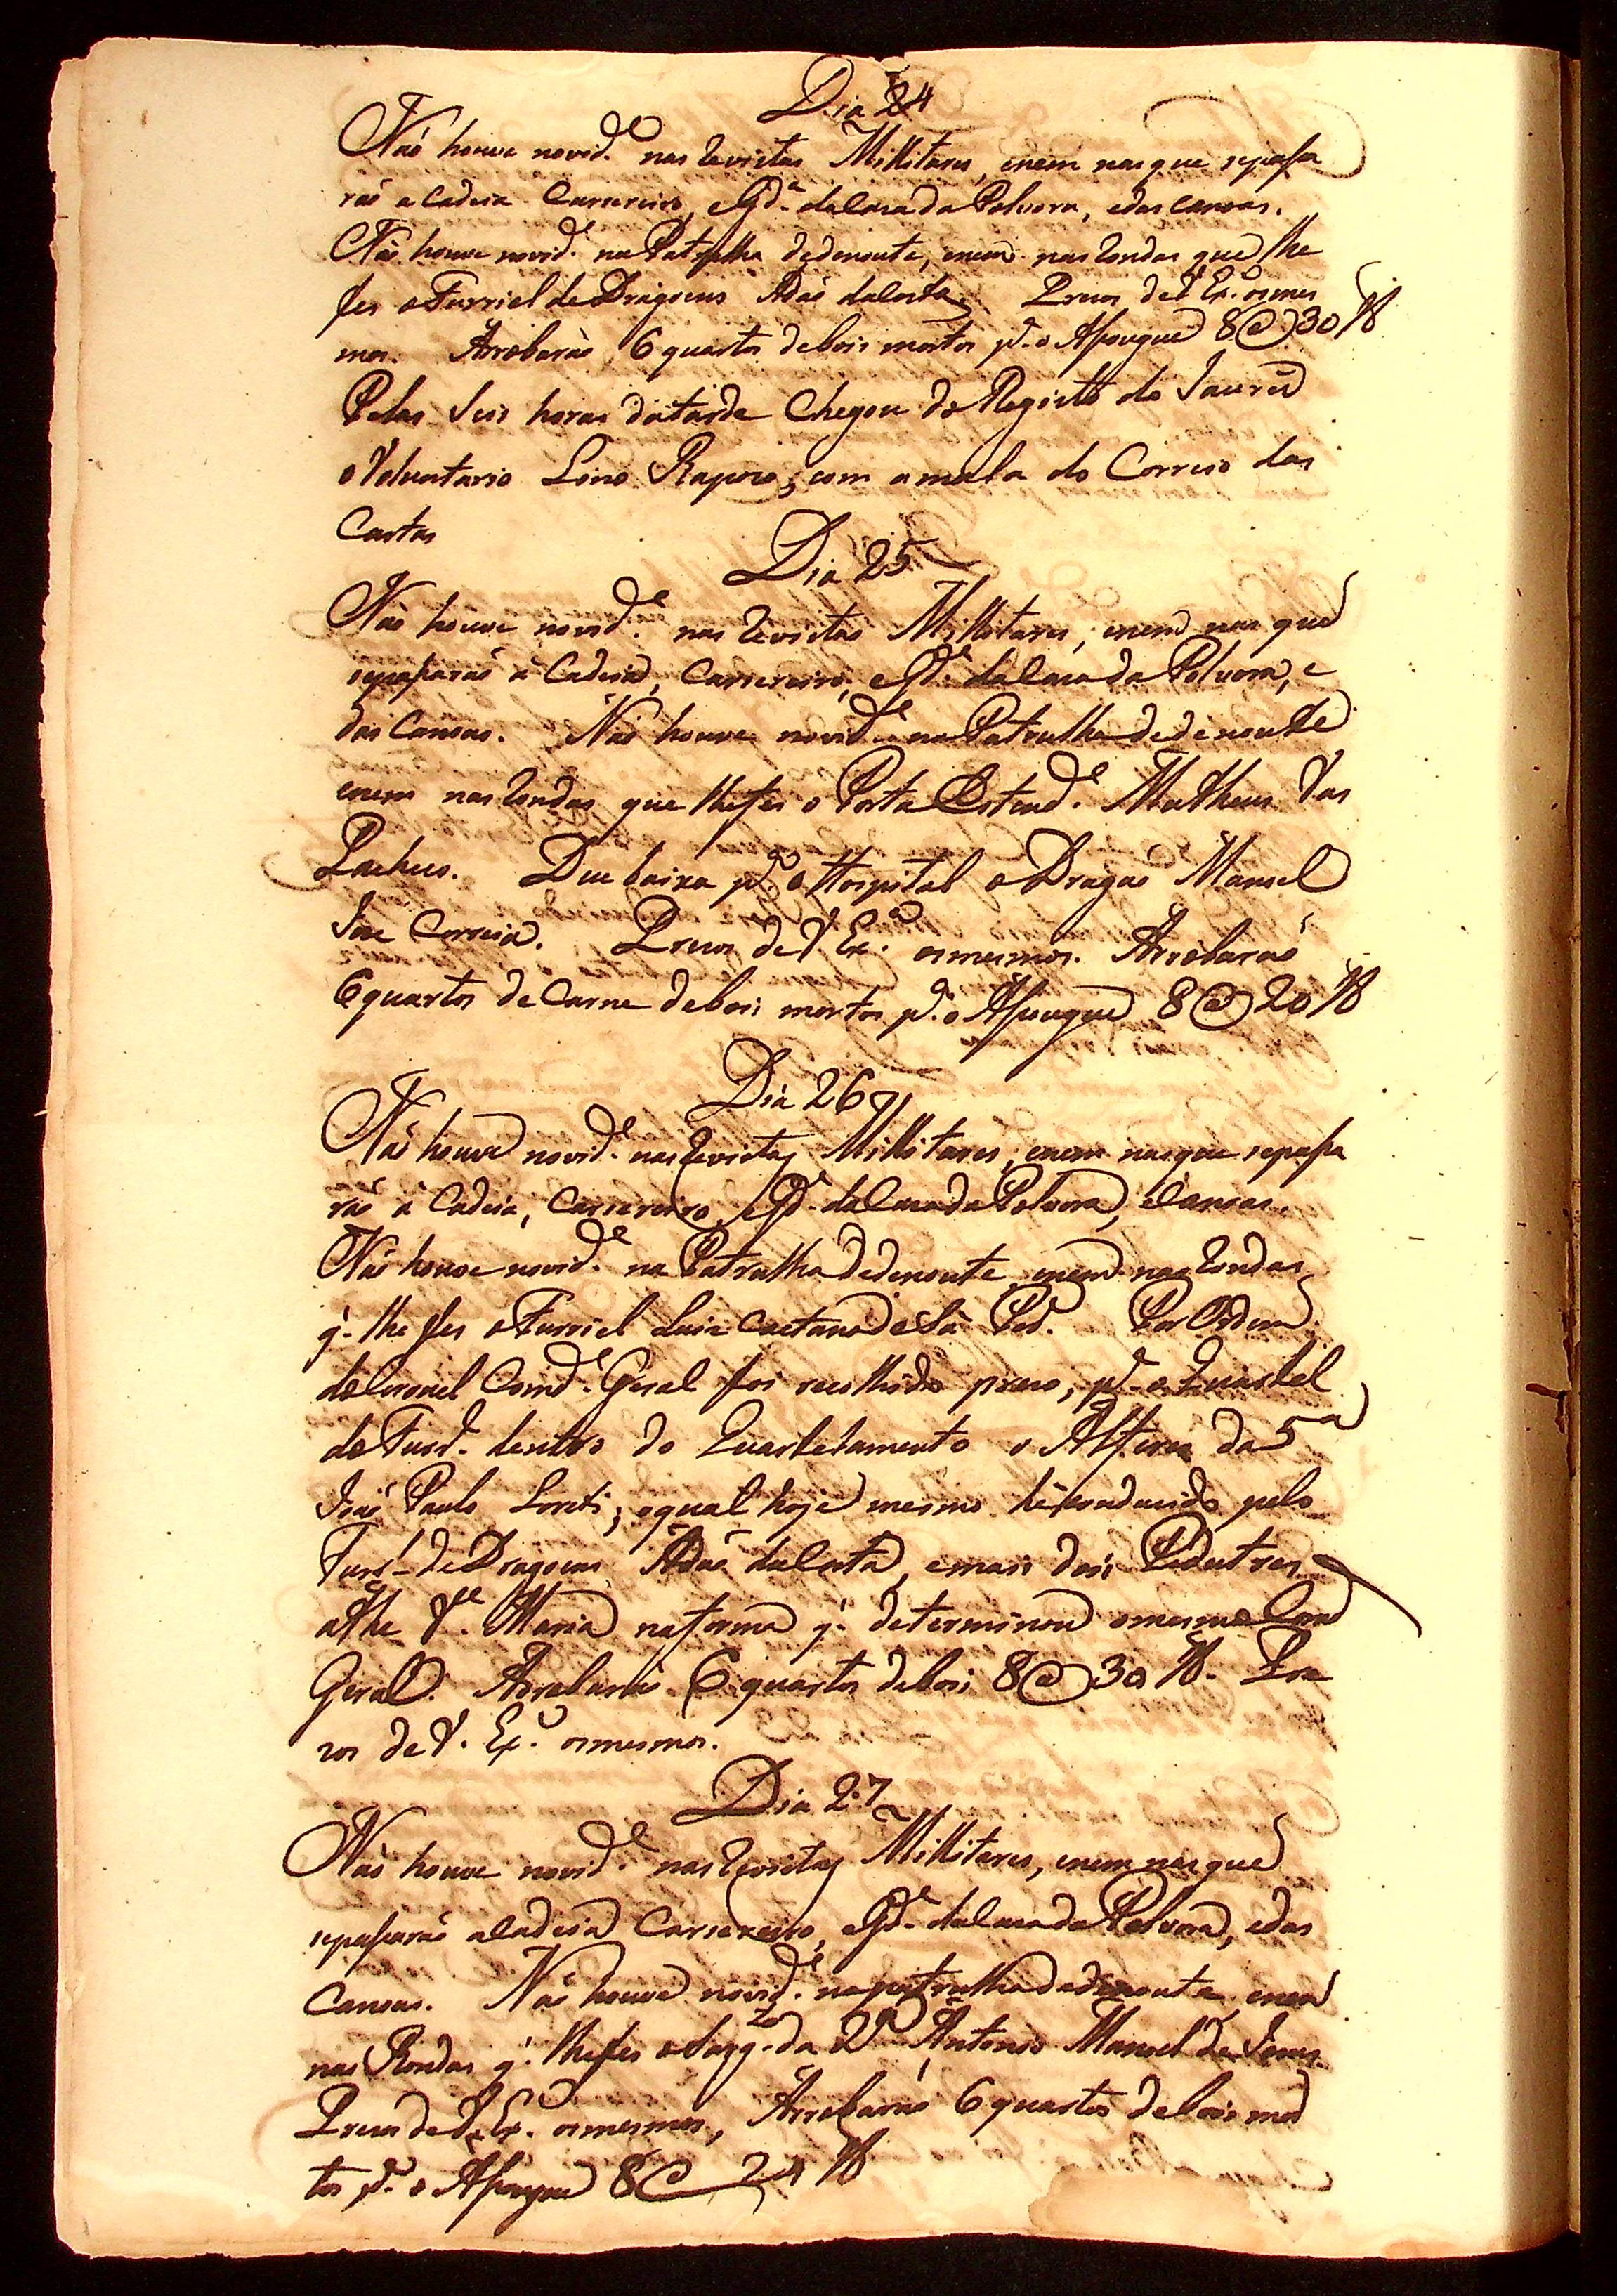 Dia 24
Não houve novid.e nas revistas Millitares, enem nas que sepassa
rão a Cadeia Carsereiro, eGd.a daCaza da Polvora, edas canoas.
Não houve novid.e na Patrulha dedenoute, enem nas rondas que lhe
fes oFurriel deDragoens Adão daCosta. Prezos deV Ex.a osmes
mos. Arrobarão 6 quartos debois mortos p.a o Assougue 8@30 lb
Pelas Seis horas datarde Chegou do Registo do Jaurú
oVoluntario Lino Rapozo, com amala do Correio das
Cartas
Dia 25
Não houve novid.e nas revistas Millitares, enem nas que
sepassarão a Cadeia, Carsereiro, eGd.a daCaza da Polvora, e
das Canoas. Não houve novid.e na Patrulha dedenoute
enem nas rondas que lhefes o Porta Estand.e Matheus Vas
Pacheco. Deu baixa p.a o Hospital o Dragão Manoel
Joze Correia. Prezos deV Ex.a osmesmos. Arrobarão
6 quartos de Carne debois mortos p.a o Assougue 8@20 lb
Dia 26
Não houve novid.e nas revistas Millitares, enem nas que sepassa
rão a Cadeia, Carsereiro, eGd.a daCaza da Polvora, eCanoas.
Não houve novid.e na Patrulha dedenoute, enem nas rondas
q. lhe fes oFurriel Luis Caetano de Sá Ordem
doCoronel Comd.e Geral foi recolhido prezo, p.a o Quartel
do Furr.l dentro do Quartelamento o Alferes da 5.a
João Paulo hoje mesmo hé conduzido pelo
Furr.l deDragoens Adão daCosta, emais dois Pedestres
athe V.a Maria na forma q. determinou omesmo Comd
Geral. Arrobarão 6 quartos debois 8@30 lb. Pre
zos de V. Ex.a osmesmos.
Dia 27
Não houve novid.e nas revistas Millitares, enem nas que
sepassarão aCadeia Carsereiro, eGd.a daCaza da Polvora, edas
Canoas. Não houve novid.e napatrulha dedenoute, enem
nas Rondas q. lhefes oSarg.to da 2.a Antonio Manoel de
Prezos de V. Ex.a osmesmos, Arrobarão 6 quartos debois mor
tos p.a o Assougue 8@ 24 lb